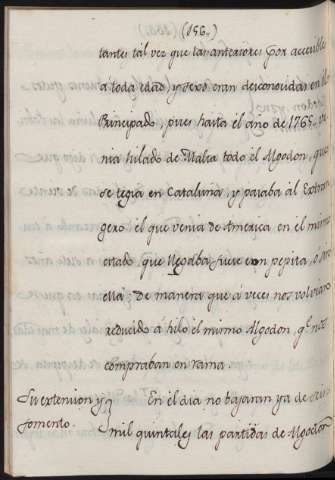 (156.)
tantes tal vez que las anteriores por accesibles
a toda edad y sexo eran desconocidas en el
Principado, pues hasta el año de 1765, ve
nia hilado de Malta todo el Algodon, que
se tegia en Cataluña y pasaba al Extran
gero el que venia de America en el mismo
estado que llegaba fuese con pepita, ó sin
ella de manera que á veces nos volviero
reducido á hilo el mismo Algodon, qe nos
compraban en rama.
Su extension y
fomento.
En el dia no bajaran ya de
mil quintales las partidas de Algodon